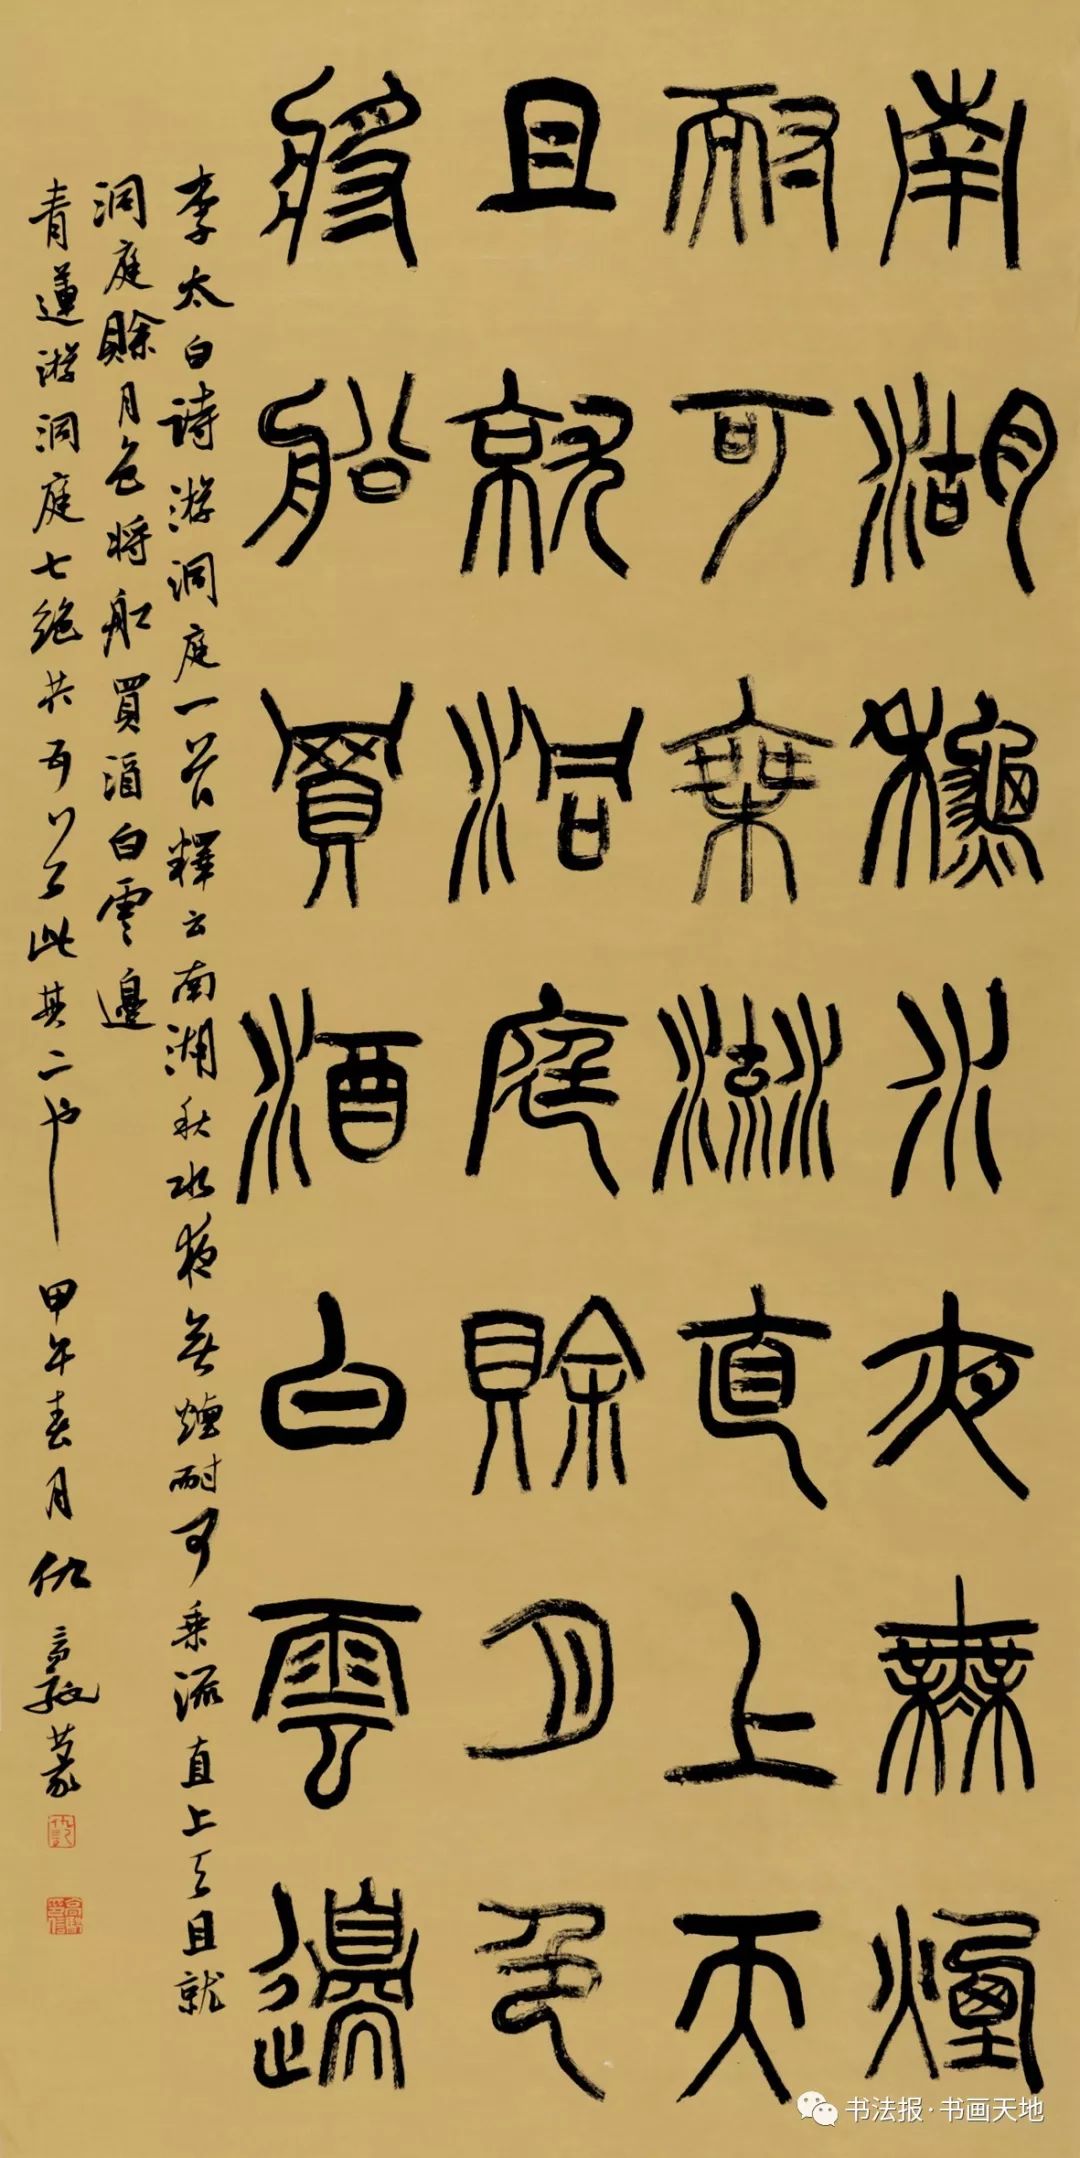 南湖龝水夜無煙
耐可乘流直上天
且就洞庭賒月色
將船買酒白雲邊
李太白詩游洞庭一首釋云南湖秋水夜無煙耐可乘流直上天且就
洞庭賒月色將船買酒白雲邊
青蓮游洞庭七絕共五首此其二也甲午春月仇高馳篆
书法报·书画天地